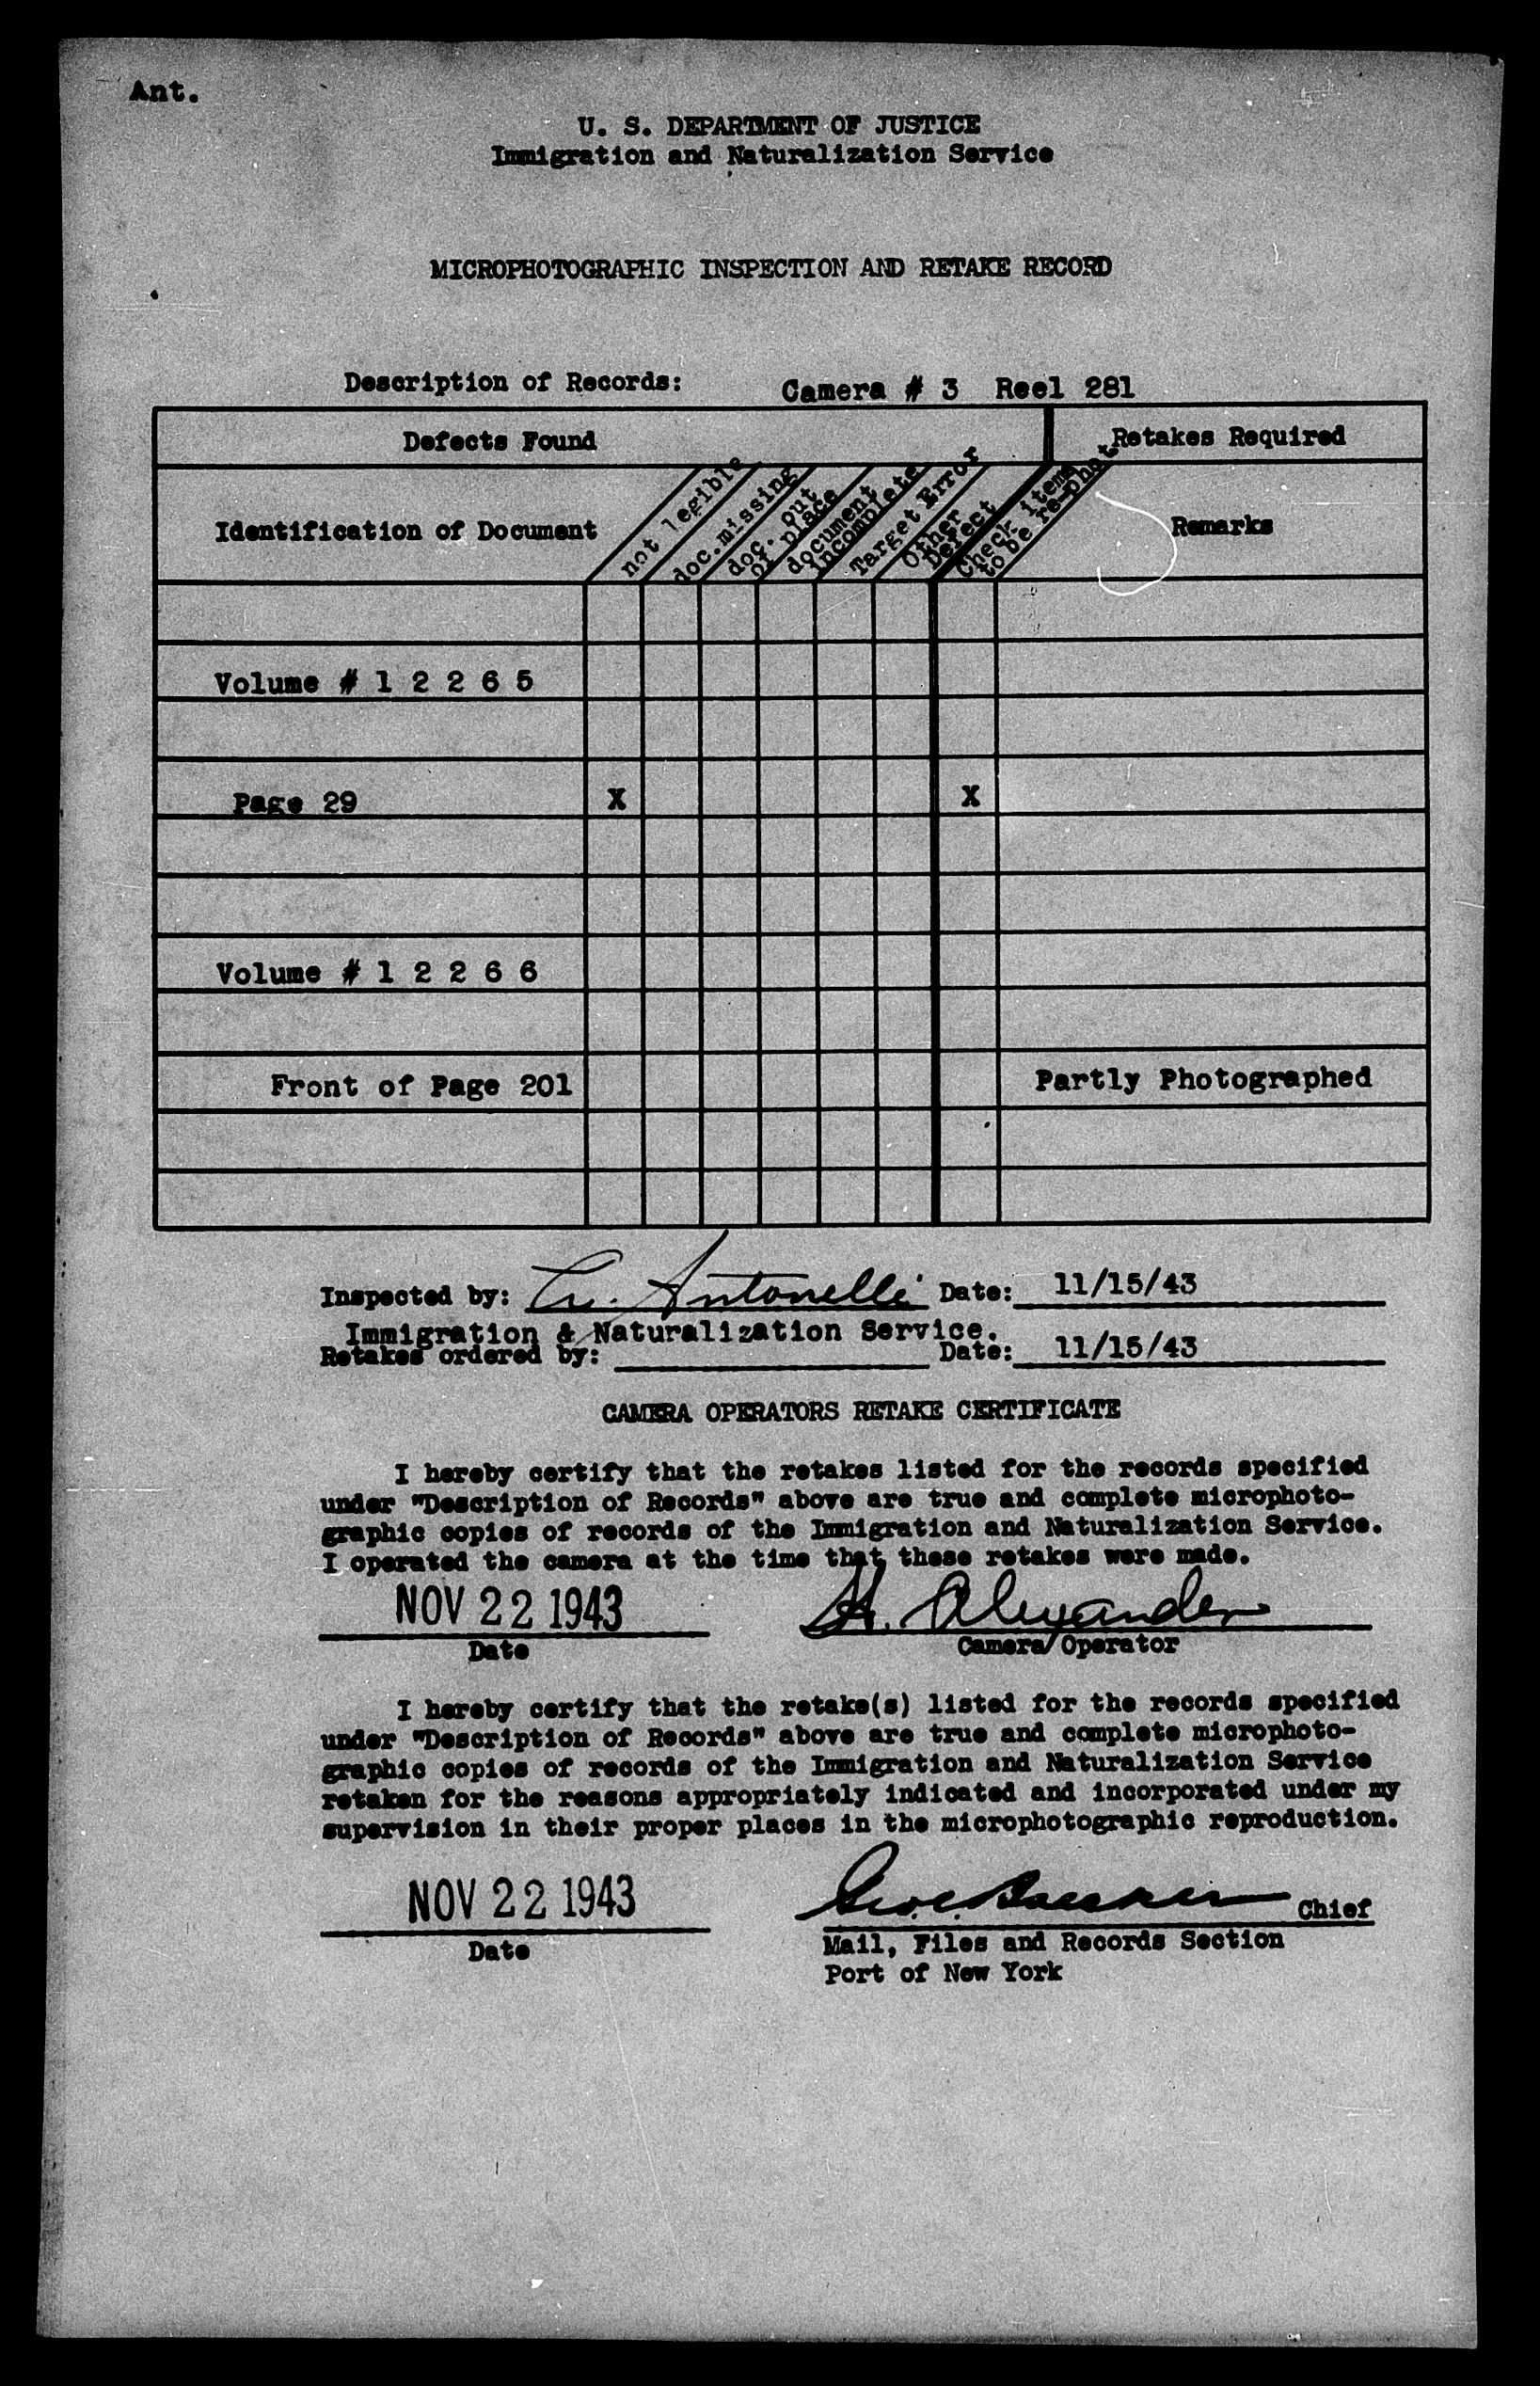 Ant.
U. S. DEPARTMENT OF JUSTICE
Immigration and Naturalization Service
MICROPHOTOGRAPHIC INSPECTION AND RETAKE RECORD
Description of Records: Camera # 3 Reel 281
Defects Found Retakes Required
Identification of Document
not legible
doc.missing
doc. out
of place
document
incomplete
Target Error
Other
Defect
Check items
to be re-phot
Remarks
Volume # 1 2 2 6 5
Page 29 X X
Volume # 1 2 2 6 6
Front of Page 201 Partly Photographed
Inspected by: Antonelli Date: 11/15/43
Immigration & Naturalization Service.
Retakes ordered by: Date: 11/15/43
CAMERA OPERATORS RETAKE CERTIFICATE
I hereby certify that the retakes listed for the records specified
under "Description of Records" above are true and complete microphoto-
graphic copies of records of the Immigration and Naturalization Service.
I operated the camera at the time that these retakes were made.
NOV 22 1943 H. Alexander
Date Camera Operator
I hereby certify that the retake(s) listed for the records specified
under "Description of Records" above are true and complete microphoto-
graphic copies of records of the Immigration and Naturalization Service
retaken for the reasons appropriately indicated and incorporated under my
supervision in their proper places in the microphotographic reproduction.
NOV 22 1943 Chief
Date Mail, Files and Records Section
Port of New York